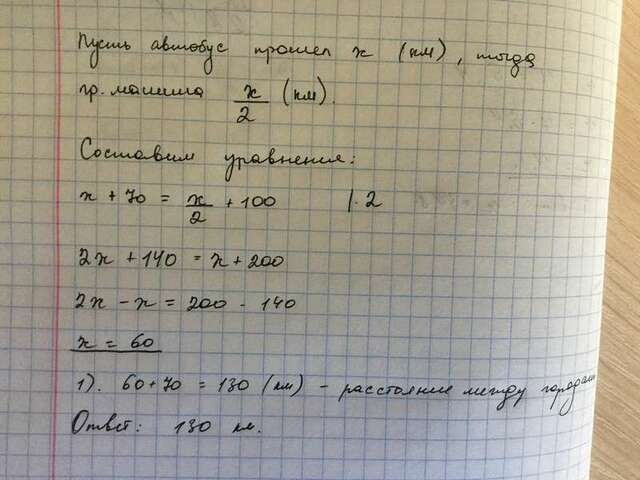 Пусть автобус прошел x (км), тогда
гр. машина x/2 (км).
Составим уравнение:
x + 70 = x/2 + 100 |·2
2x + 140 = x + 200
2x - x = 200 - 140
x = 60
1). 60+70 = 130 (км) - расстояние между городами
Ответ: 130 км.